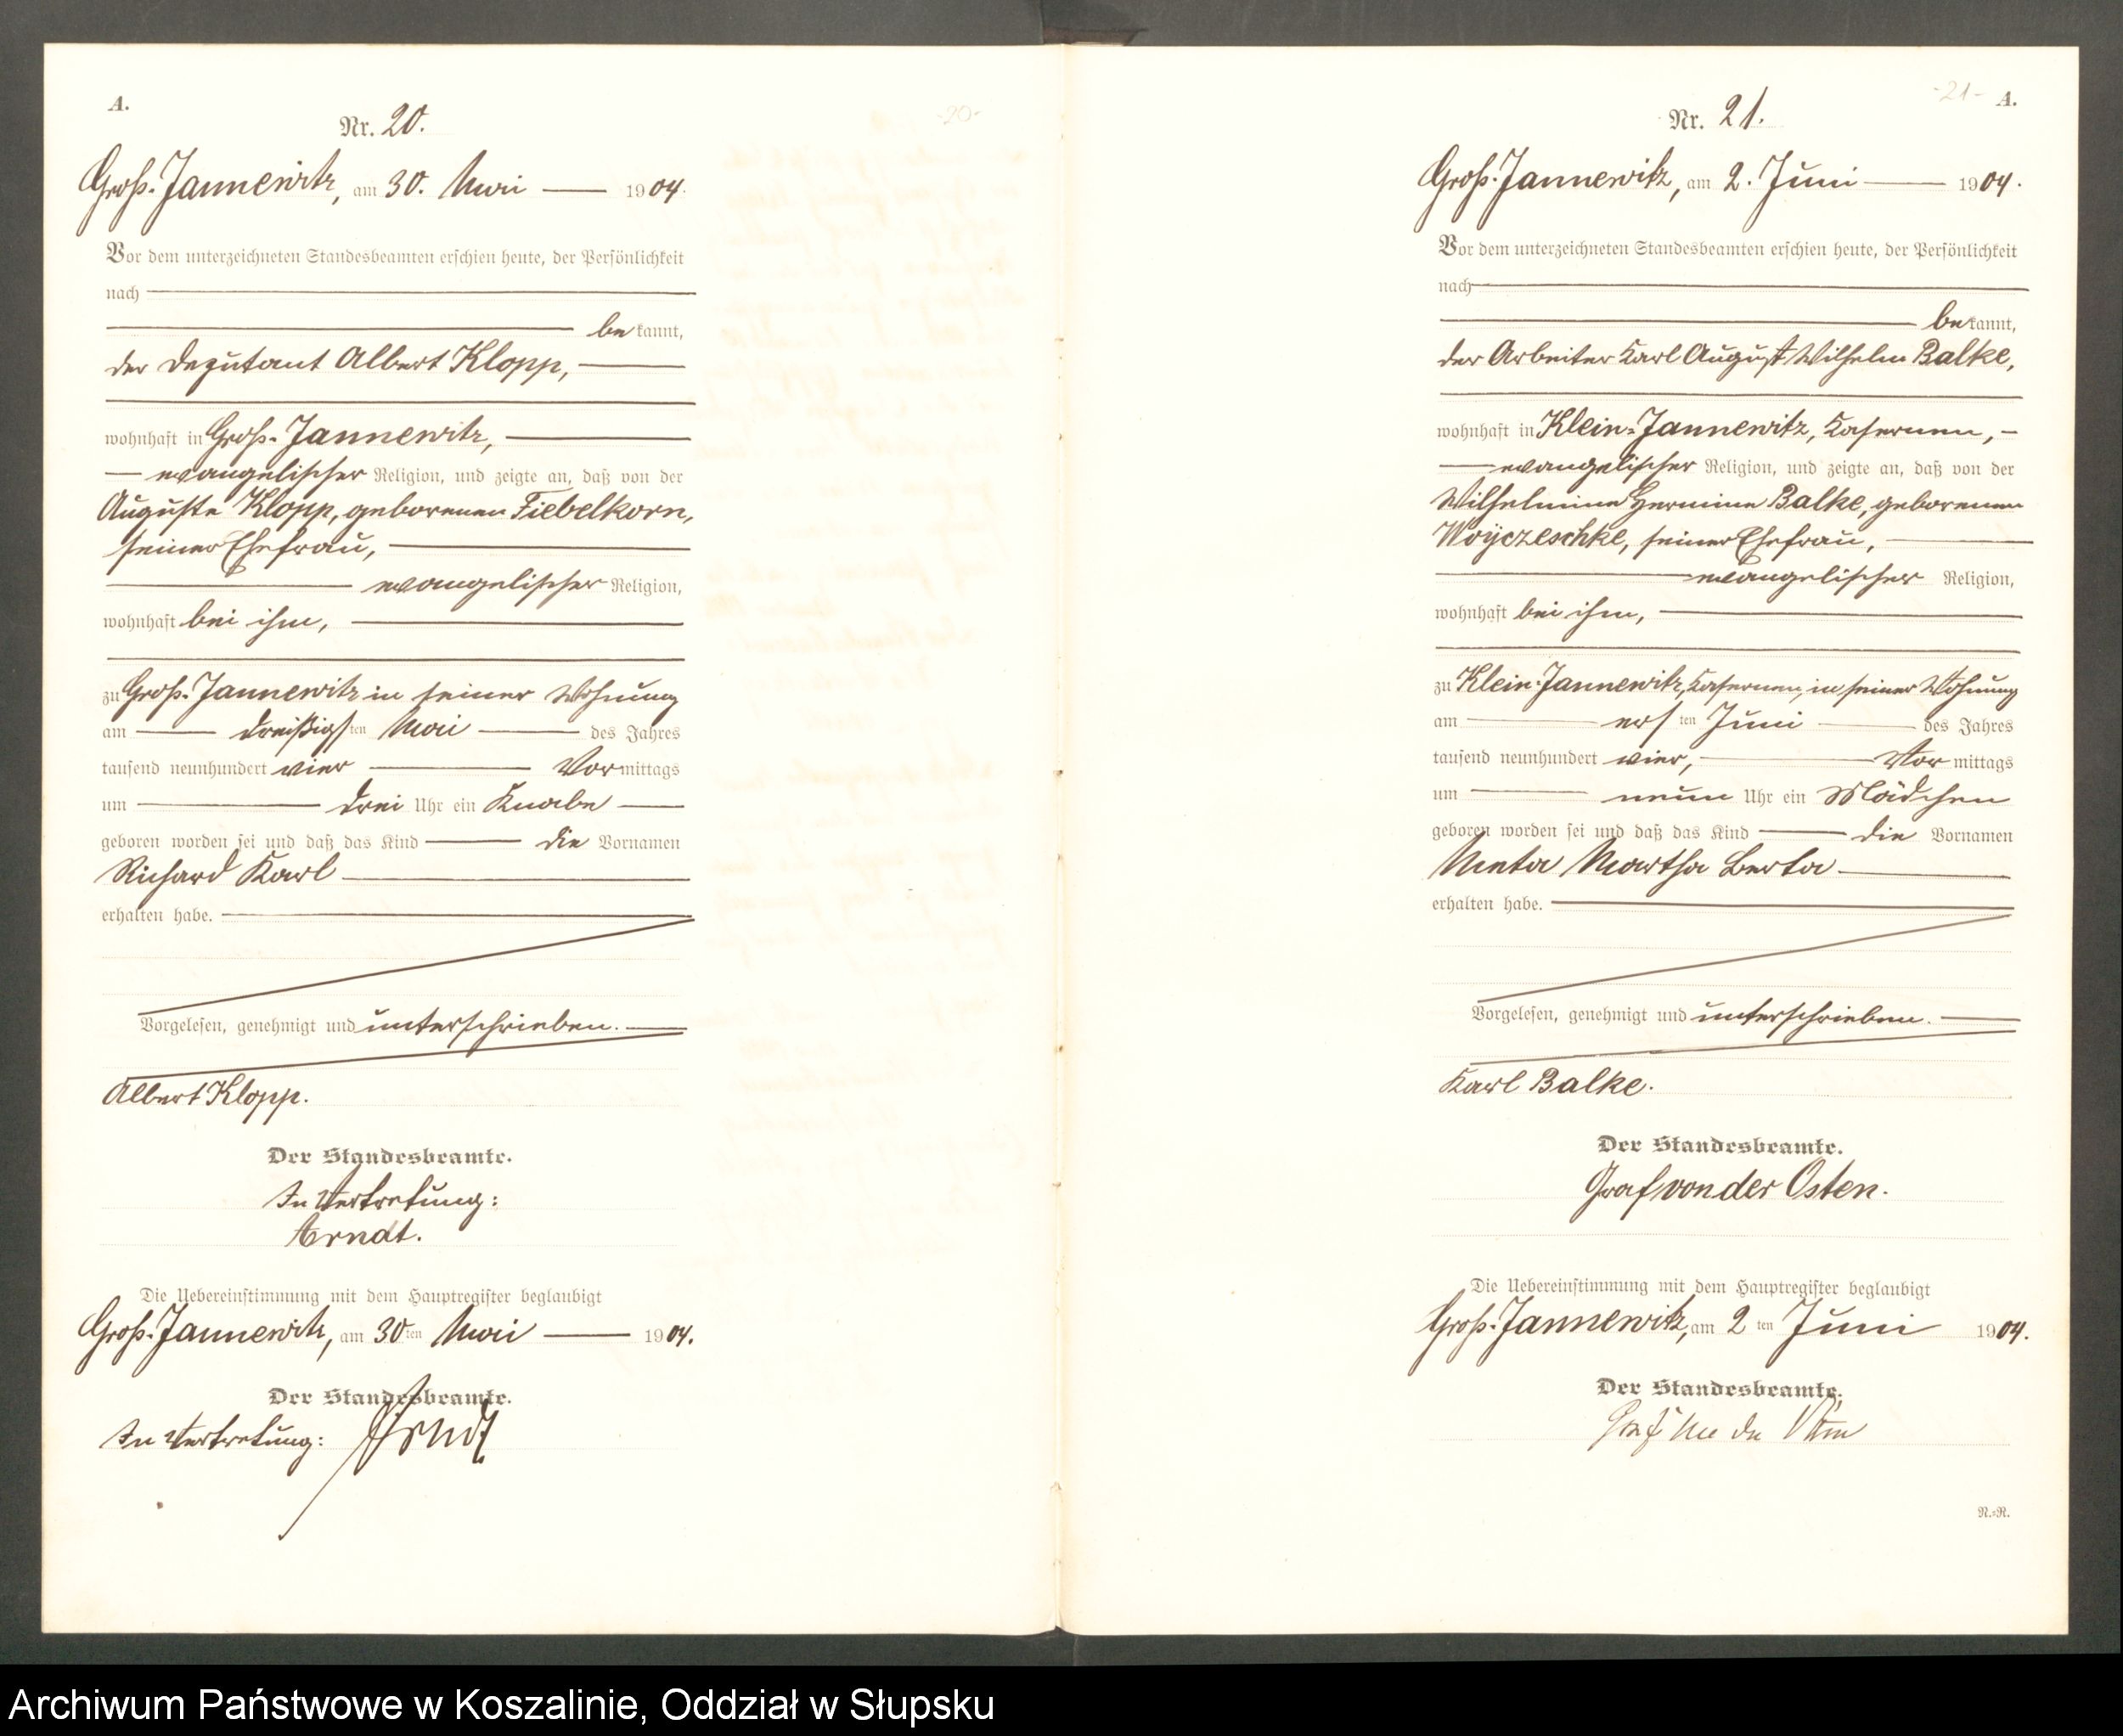 A.
-20-
Nr. 20.
Groß-Jannewitz, am 30. Mai 1904.
Vor dem unterzeichneten Standesbeamten erschien heute, der Persönlichkeit
nach
bekannt,
der Deputant Albert Klopp,
wohnhaft in Groß-Jannewitz,
evangelischer Religion, und zeigte an, daß von der
Auguste Klopp, geborenen Fiebelkorn,
seiner Ehefrau,
evangelischer Religion,
wohnhaft bei ihm,
zu Groß-Jannewitz in seiner Wohnung
am dreißigsten Mai des Jahres
tausend neunhundert vier Vormittags
um drei Uhr ein Knabe
geboren worden sei und daß das Kind die Vornamen
Richard Karl
erhalten habe.
Vorgelesen, genehmigt und unterschrieben.
Albert Klopp.
Der Standesbeamte.
In Vertretung:
Arndt.
Die Uebereinstimmung mit dem Hauptregister beglaubigt
Groß-Jannewitz, am 30ten Mai 1904.
Der Standesbeamte.
In Vertretung: Arndt
-21- A.
Nr. 21.
Groß-Jannewitz, am 2. Juni 1904.
Vor dem unterzeichneten Standesbeamten erschien heute, der Persönlichkeit
nach
bekannt,
der Arbeiter Karl August Wilhelm Balke,
wohnhaft in Klein-Jannewitz, Kasernen,
evangelischer Religion, und zeigte an, daß von der
Wilhelmine Hermine Balke, geborenen
Woyczeschke, seiner Ehefrau,
evangelischer Religion,
wohnhaft bei ihm,
zu Klein-Jannewitz, Kasernen, in seiner Wohnung
am ersten Juni des Jahres
tausend neunhundert vier, Vormittags
um neun Uhr ein Mädchen
geboren worden sei und daß das Kind die Vornamen
Meta Martha Berta
erhalten habe.
Vorgelesen, genehmigt und unterschrieben.
Karl Balke.
Der Standesbeamte.
Graf von der Osten.
Die Uebereinstimmung mit dem Hauptregister beglaubigt
Groß-Jannewitz, am 2ten Juni 1904.
Der Standesbeamte.
Graf von der Osten
N.=R.
Archiwum Państwowe w Koszalinie, Oddział w Słupsku